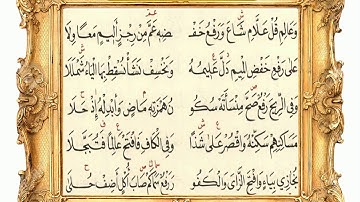 وَعَالِمِ قُلْ عَلَّامِ شَاعَ وَرَفْعُ خَفْـ ـضِهِ عَمَّ مِنْ رِجْزٍ أَلِيمٍ مَعًا وِلَا
عَلَى رَفْعِ خَفْضِ الْمِيمِ دَلَّ عَلِيمُهُ وَنَخْسِفْ نَشَأْ نُسْقِطْ بِهَا الْيَاءُ شَمْلَلَا
وَفِي الرِّيحِ رَفْعٌ صَحَّ مِنْسَأَتَهُ سُكُو نُ هَمْزَتِهِ مَاضٍ وَأَبْدِلْهُ إِذْ حَلَا
مَسَاكِنِهِمْ سَكِّنْهُ وَاقْصُرْ عَلَى شَذًا وَفِي الْكَافِ فَافْتَحْ عَالِمًا فَتُبَجَّلَا
نُجَازِي بِيَاءٍ وَافْتَحِ الزَّايَ وَالْكَفُو رَ رَفْعٌ سَمَا كَمْ صَابَ أُكْلٍ أَضِفْ حُلَى